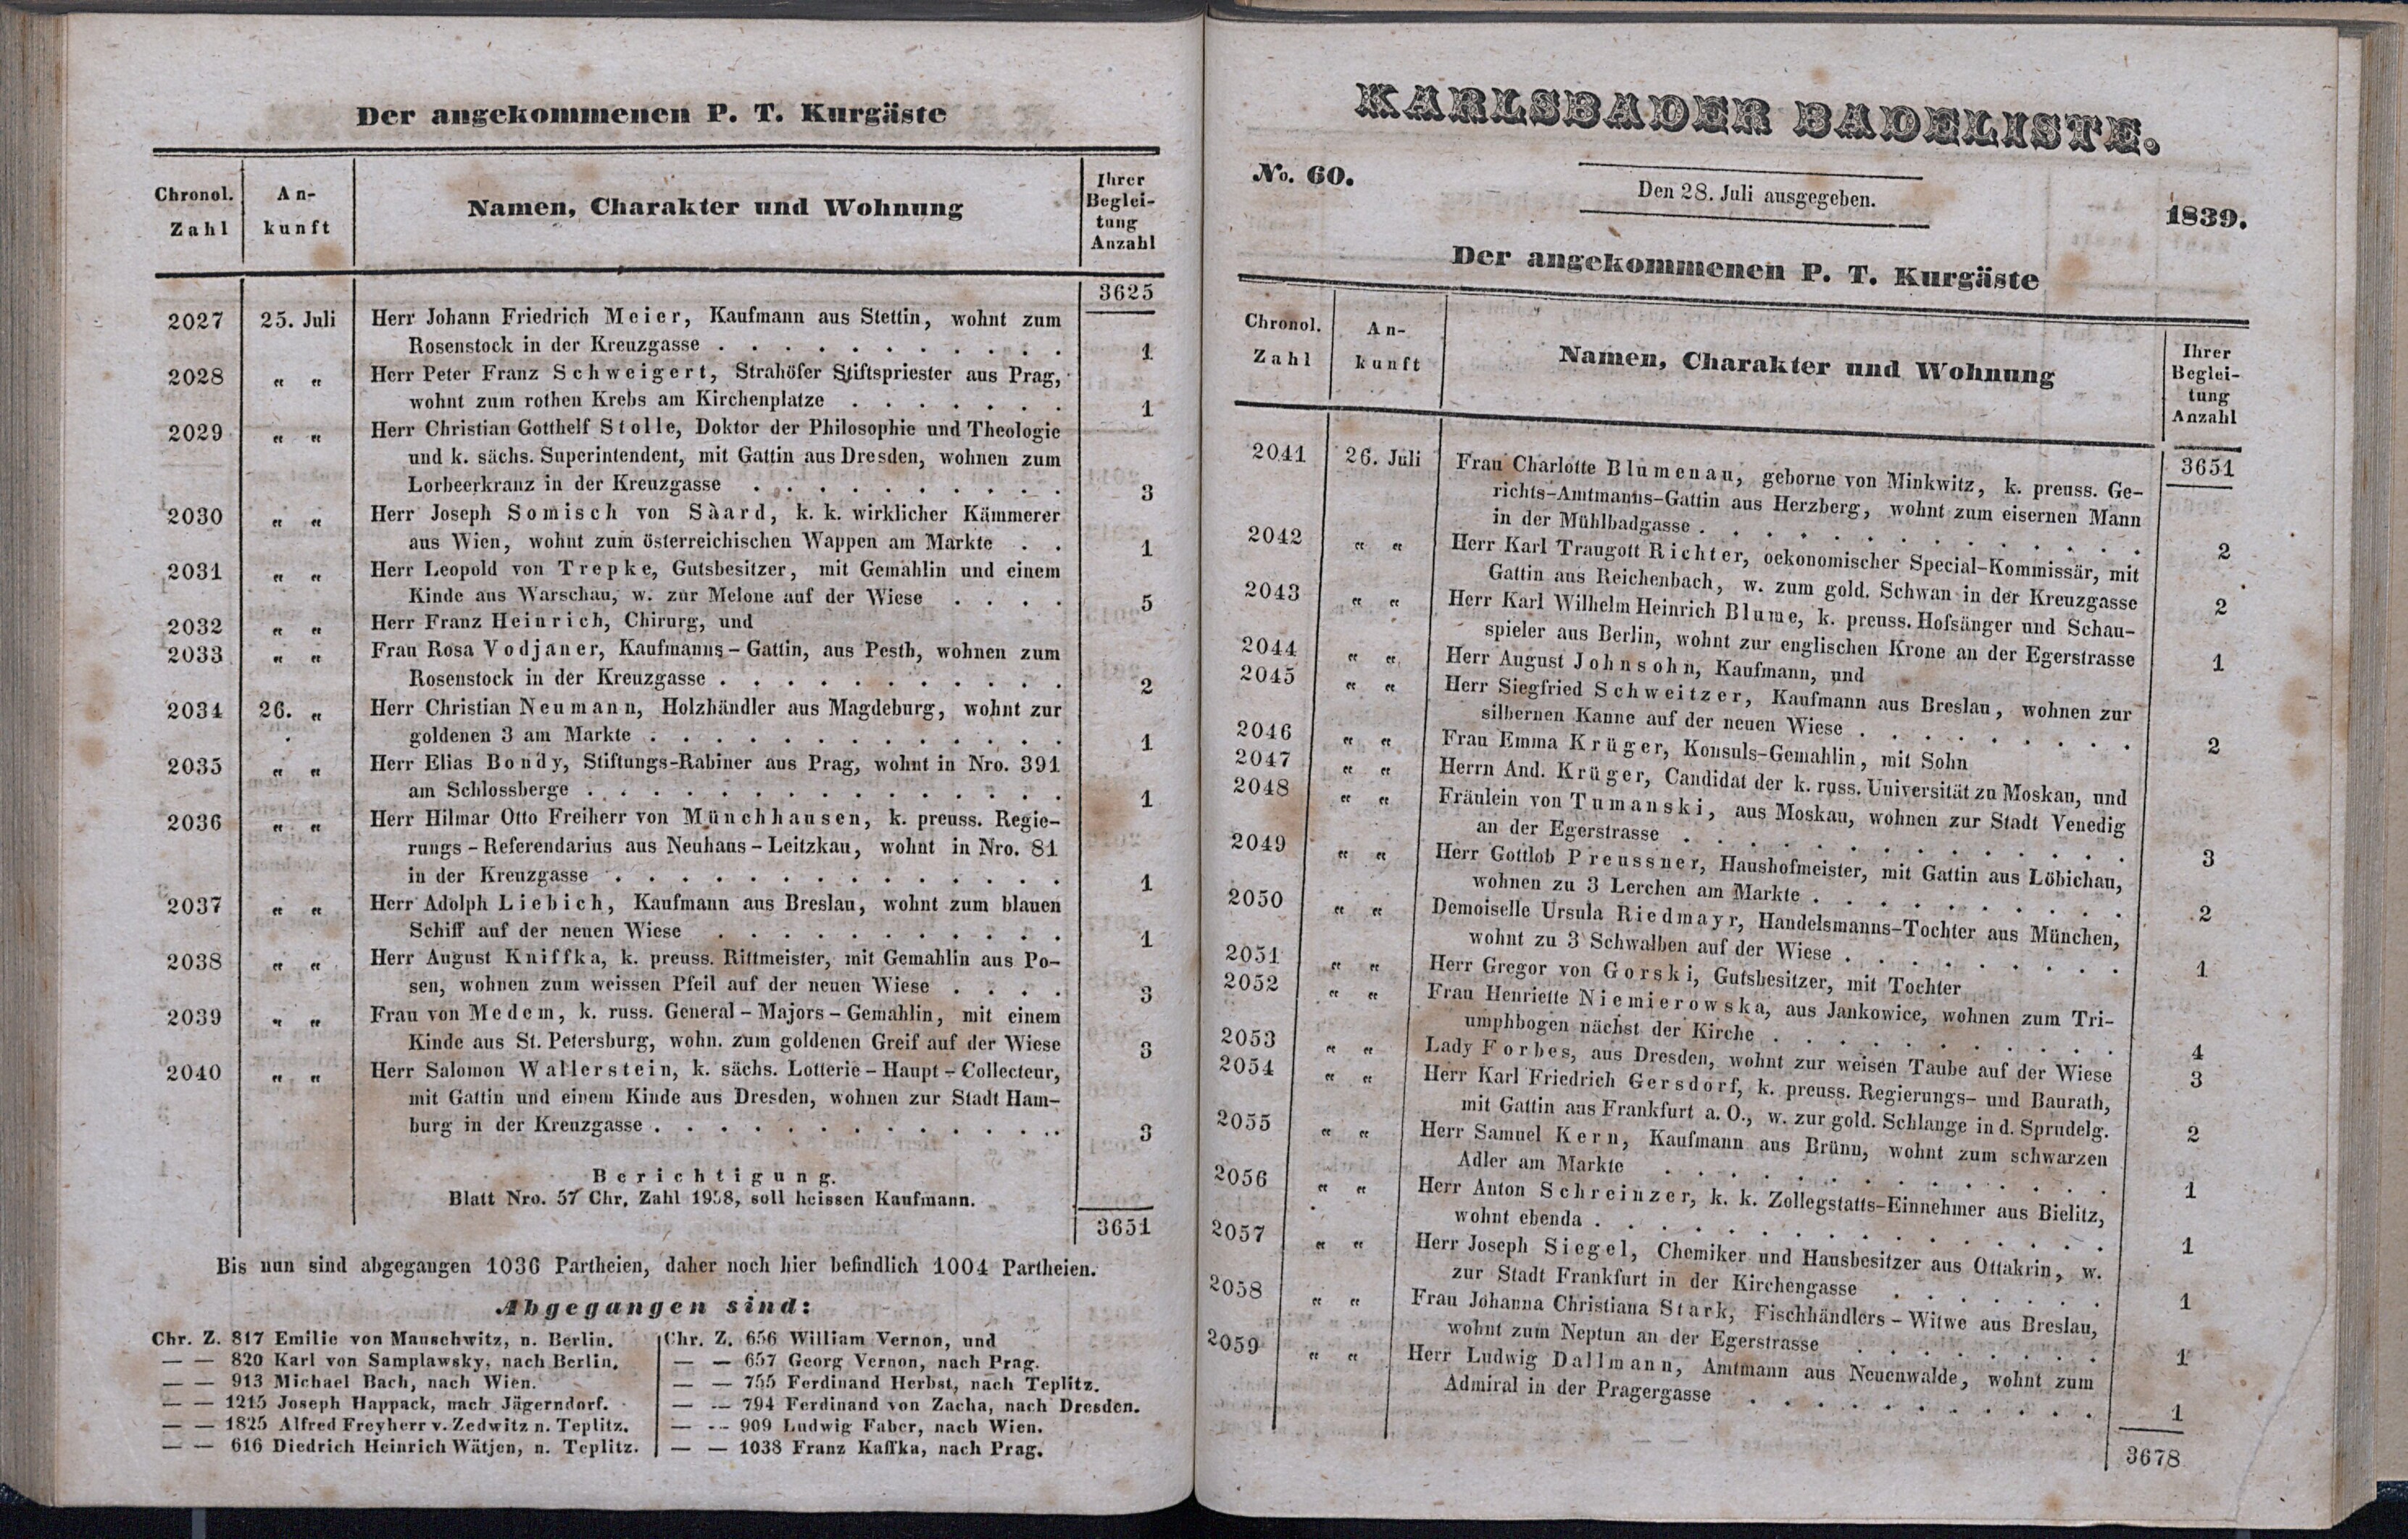 Der angekommenen P. T. Kurgäste
Chronol. Zahl | An-kunft | Namen, Charakter und Wohnung | Ihrer Beglei-tung Anzahl
3625
2027 25. Juli Herr Johann Friedrich Meier, Kaufmann aus Stettin, wohnt zum
Rosenstock in der Kreuzgasse . . . . . . . . . . . 1
2028 „ „ Herr Peter Franz Schweigert, Strahöfer Stiftspriester aus Prag,
wohnt zum rothen Krebs am Kirchenplatze . . . . . . . 1
2029 „ „ Herr Christian Gotthelf Stolle, Doktor der Philosophie und Theologie
und k. sächs. Superintendent, mit Gattin aus Dresden, wohnen zum
Lorbeerkranz in der Kreuzgasse . . . . . . . . . . 3
2030 „ „ Herr Joseph Somisch von Sàard, k. k. wirklicher Kämmerer
aus Wien, wohnt zum österreichischen Wappen am Markte . . 1
2031 „ „ Herr Leopold von Trepke, Gutsbesitzer, mit Gemahlin und einem
Kinde aus Warschau, w. zur Melone auf der Wiese . . . . 5
2032 „ „ Herr Franz Heinrich, Chirurg, und
2033 „ „ Frau Rosa Vodjaner, Kaufmanns-Gattin, aus Pesth, wohnen zum
Rosenstock in der Kreuzgasse . . . . . . . . . . . 2
2034 26. „ Herr Christian Neumann, Holzhändler aus Magdeburg, wohnt zur
goldenen 3 am Markte . . . . . . . . . . . . . 1
2035 „ „ Herr Elias Bondy, Stiftungs-Rabiner aus Prag, wohnt in Nro. 391
am Schlossberge . . . . . . . . . . . . . . . 1
2036 „ „ Herr Hilmar Otto Freiherr von Münchhausen, k. preuss. Regie-
rungs-Referendarius aus Neuhaus-Leitzkau, wohnt in Nro. 81
in der Kreuzgasse . . . . . . . . . . . . . . 1
2037 „ „ Herr Adolph Liebich, Kaufmann aus Breslau, wohnt zum blauen
Schiff auf der neuen Wiese . . . . . . . . . . . 1
2038 „ „ Herr August Kniffka, k. preuss. Rittmeister, mit Gemahlin aus Po-
sen, wohnen zum weissen Pfeil auf der neuen Wiese . . . . 3
2039 „ „ Frau von Medem, k. russ. General-Majors-Gemahlin, mit einem
Kinde aus St. Petersburg, wohn. zum goldenen Greif auf der Wiese 3
2040 „ „ Herr Salomon Wallerstein, k. sächs. Lotterie-Haupt-Collecteur,
mit Gattin und einem Kinde aus Dresden, wohnen zur Stadt Ham-
burg in der Kreuzgasse . . . . . . . . . . . . . 3
Berichtigung.
Blatt Nro. 57 Chr. Zahl 1958, soll heissen Kaufmann.
3651
Bis nun sind abgegangen 1036 Partheien, daher noch hier befindlich 1004 Partheien.
Abgegangen sind:
Chr. Z. 817 Emilie von Manschwitz, n. Berlin.
— — 820 Karl von Samplawsky, nach Berlin.
— — 913 Michael Bach, nach Wien.
— — 1215 Joseph Happack, nach Jägerndorf.
— — 1825 Alfred Freyherr v. Zedwitz n. Teplitz.
— — 616 Diedrich Heinrich Wätjen, n. Teplitz.
Chr. Z. 656 William Vernon, und
— — 657 Georg Vernon, nach Prag.
— — 755 Ferdinand Herbst, nach Teplitz.
— — 794 Ferdinand von Zacha, nach Dresden.
— — 909 Ludwig Faber, nach Wien.
— — 1038 Franz Kaffka, nach Prag.
KARLSBADER BADELISTE.
No. 60.
Den 28. Juli ausgegeben.
1839.
Der angekommenen P. T. Kurgäste
Chronol. Zahl | An-kunft | Namen, Charakter und Wohnung | Ihrer Beglei-tung Anzahl
3651
2041 26. Juli Frau Charlotte Blumenau, geborne von Minkwitz, k. preuss. Ge-
richts-Amtmanns-Gattin aus Herzberg, wohnt zum eisernen Mann
in der Mühlbadgasse . . . . . . . . . . . . . 2
2042 „ „ Herr Karl Traugott Richter, oekonomischer Special-Kommissär, mit
Gattin aus Reichenbach, w. zum gold. Schwan in der Kreuzgasse 2
2043 „ „ Herr Karl Wilhelm Heinrich Blume, k. preuss. Hofsänger und Schau-
spieler aus Berlin, wohnt zur englischen Krone an der Egerstrasse 1
2044 „ „ Herr August Johnsohn, Kaufmann, und
2045 „ „ Herr Siegfried Schweitzer, Kaufmann aus Breslau, wohnen zur
silbernen Kanne auf der neuen Wiese . . . . . . . . . 2
2046 „ „ Frau Emma Krüger, Konsuls-Gemahlin, mit Sohn
2047 „ „ Herrn And. Krüger, Candidat der k. russ. Universität zu Moskau, und
2048 „ „ Fräulein von Tumanski, aus Moskau, wohnen zur Stadt Venedig
an der Egerstrasse . . . . . . . . . . . . . 3
2049 „ „ Herr Gottlob Preussner, Haushofmeister, mit Gattin aus Löbichau,
wohnen zu 3 Lerchen am Markte . . . . . . . . . . 2
2050 „ „ Demoiselle Ursula Riedmayr, Handelsmanns-Tochter aus München,
wohnt zu 3 Schwalben auf der Wiese . . . . . . . . . 1
2051 „ „ Herr Gregor von Gorski, Gutsbesitzer, mit Tochter
2052 „ „ Frau Henriette Niemierowska, aus Jankowice, wohnen zum Tri-
umphbogen nächst der Kirche . . . . . . . . . . . 4
2053 „ „ Lady Forbes, aus Dresden, wohnt zur weisen Taube auf der Wiese 3
2054 „ „ Herr Karl Friedrich Gersdorf, k. preuss. Regierungs- und Baurath,
mit Gattin aus Frankfurt a. O., w. zur gold. Schlange in d. Sprudelg. 2
2055 „ „ Herr Samuel Kern, Kaufmann aus Brünn, wohnt zum schwarzen
Adler am Markte . . . . . . . . . . . . . 1
2056 „ „ Herr Anton Schreinzer, k. k. Zollegstatts-Einnehmer aus Bielitz,
wohnt ebenda . . . . . . . . . . . . . . . 1
2057 „ „ Herr Joseph Siegel, Chemiker und Hausbesitzer aus Ottakrin, w.
zur Stadt Frankfurt in der Kirchengasse . . . . . . . 1
2058 „ „ Frau Johanna Christiana Stark, Fischhändlers-Witwe aus Breslau,
wohnt zum Neptun an der Egerstrasse . . . . . . . 1
2059 „ „ Herr Ludwig Dallmann, Amtmann aus Neuenwalde, wohnt zum
Admiral in der Pragergasse . . . . . . . . . . . 1
3678